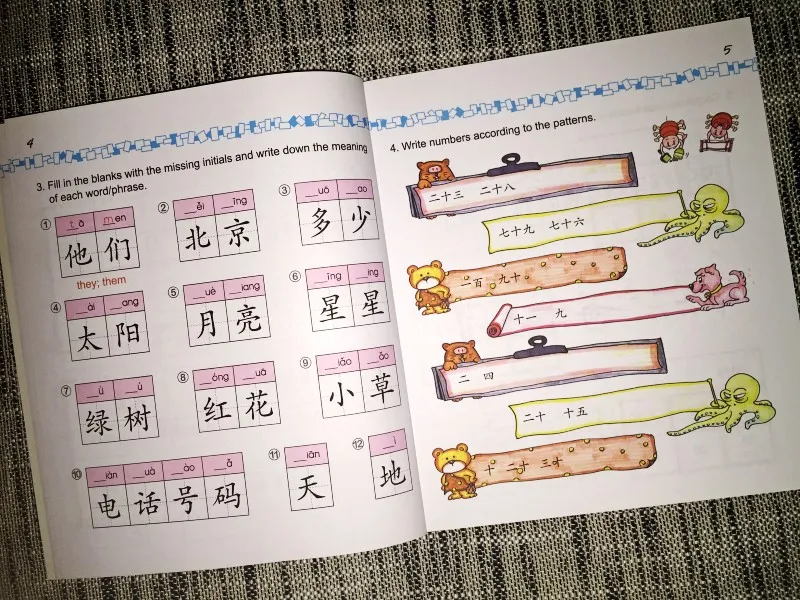 4
3. Fill in the blanks with the missing initials and write down the meaning
of each word/phrase.
① t ā m en
他 们
they; them
② __ěi __īng
北 京
③ __uō __ao
多 少
④ __ài __ang
太 阳
⑤ __uè __iang
月 亮
⑥ __īng __ing
星 星
⑦ __ǜ __ù
绿 树
⑧ __óng __uā
红 花
⑨ __iǎo __ǎo
小 草
⑩ __iàn __uà __ào __ǎ
电 话 号 码
⑪ __iān
天
⑫ __ì
地
5
4. Write numbers according to the patterns.
二十三 二十八
七十九 七十六
一百 九十
十一 九
二 四
二十 十五
十 二十 三十